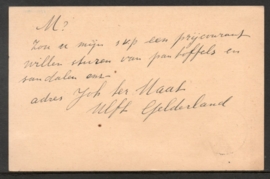 M?
Zou u mijn svp een prijscourant
willen sturen van pantoffels en
sandalen enz.
adres Joh ter Maat
Ulft Gelderland